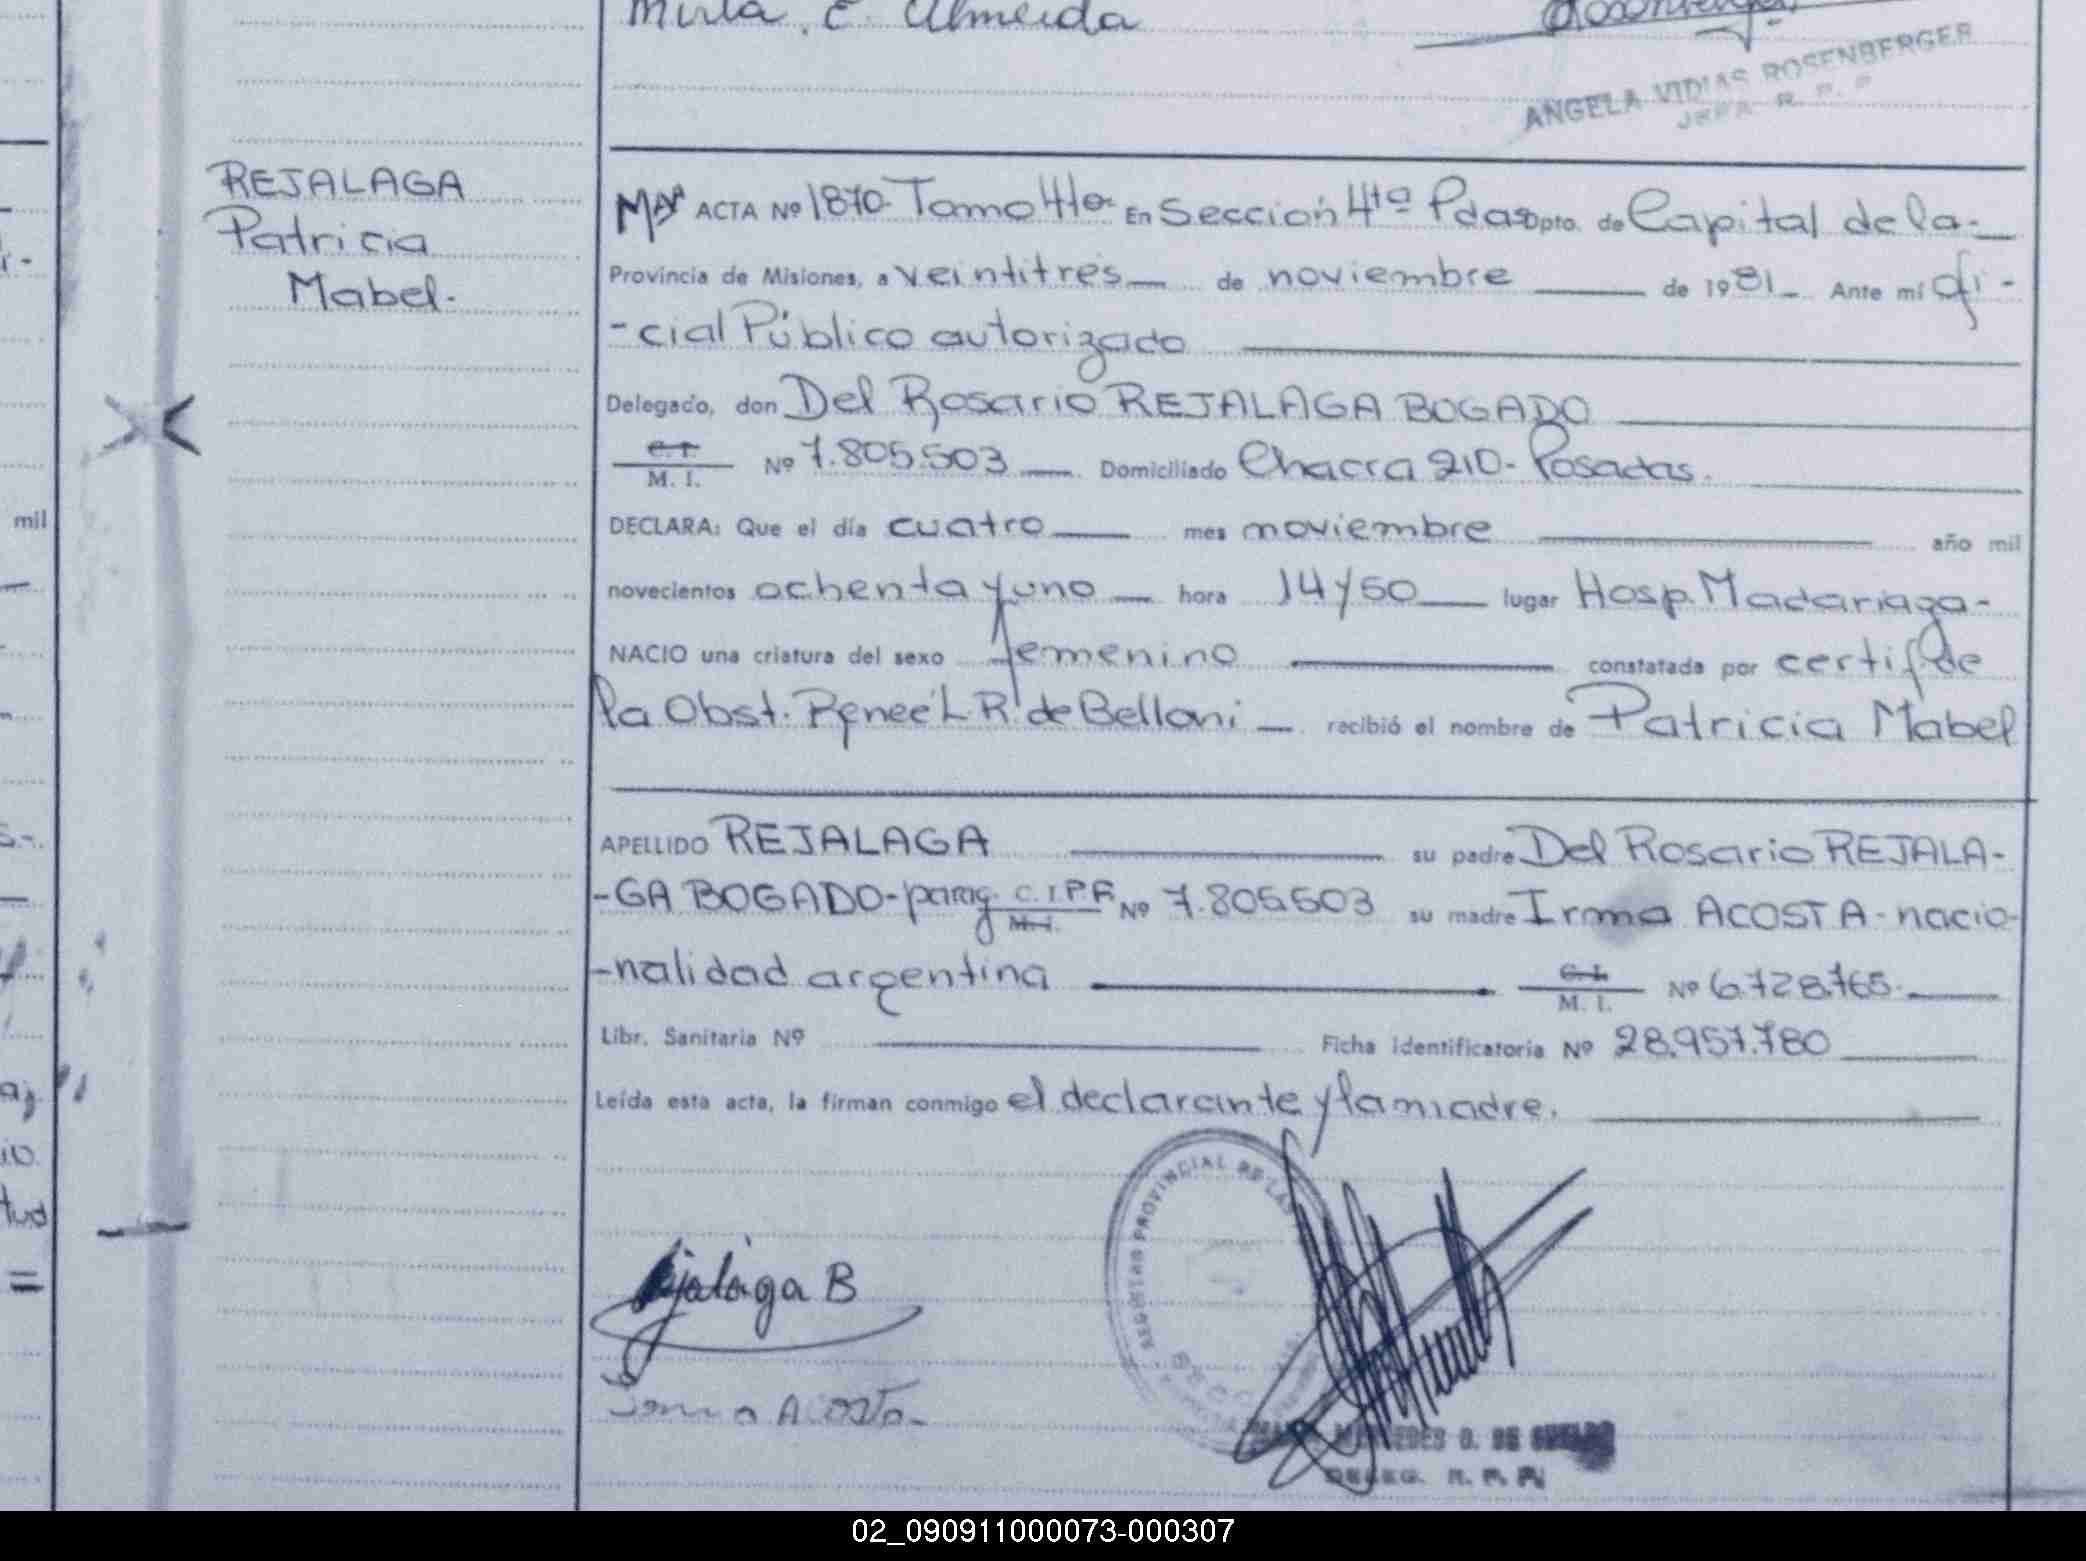 Mirta. E. Almeida
ANGELA VIDIAS ROSENBERGER
JEFA R. P. P
REJALAGA
Patricia
Mabel.
ACTA Nº 1870 Tomo 4to En Sección 4ta Pdas Dpto. de Capital de la-
Provincia de Misiones, a veintitrés de noviembre de 1981 Ante mí ofi-
-cial Público autorizado
Delegado, don Del Rosario REJALAGA BOGADO
C.I.
M. I. Nº 7.805.503 Domiciliado Chacra 210- Posadas.
DECLARA: Que el día cuatro mes noviembre año mil
novecientos ochenta y uno hora 14 y 50 lugar Hosp. Madariaga-
NACIO una criatura del sexo femenino constatada por certif de
la Obst. Reneé L R. de Belloni recibió el nombre de Patricia Mabel
APELLIDO REJALAGA su padre Del Rosario REJALA-
-GA BOGADO- parag. C.I.P.F. Nº 7.805.503 su madre Irma ACOSTA- nacio-
M. I.
-nalidad argentina C. I. Nº 6.728.765.
M. I.
Libr. Sanitaria Nº Ficha identificatoria Nº 28.957.780
Leída esta acta, la firman conmigo el declarante y la madre.
PROVINCIAL DE LAS
Rejalaga B
Irma Acosta
DELEG. R. P. P.
mil
02_090911000073-000307